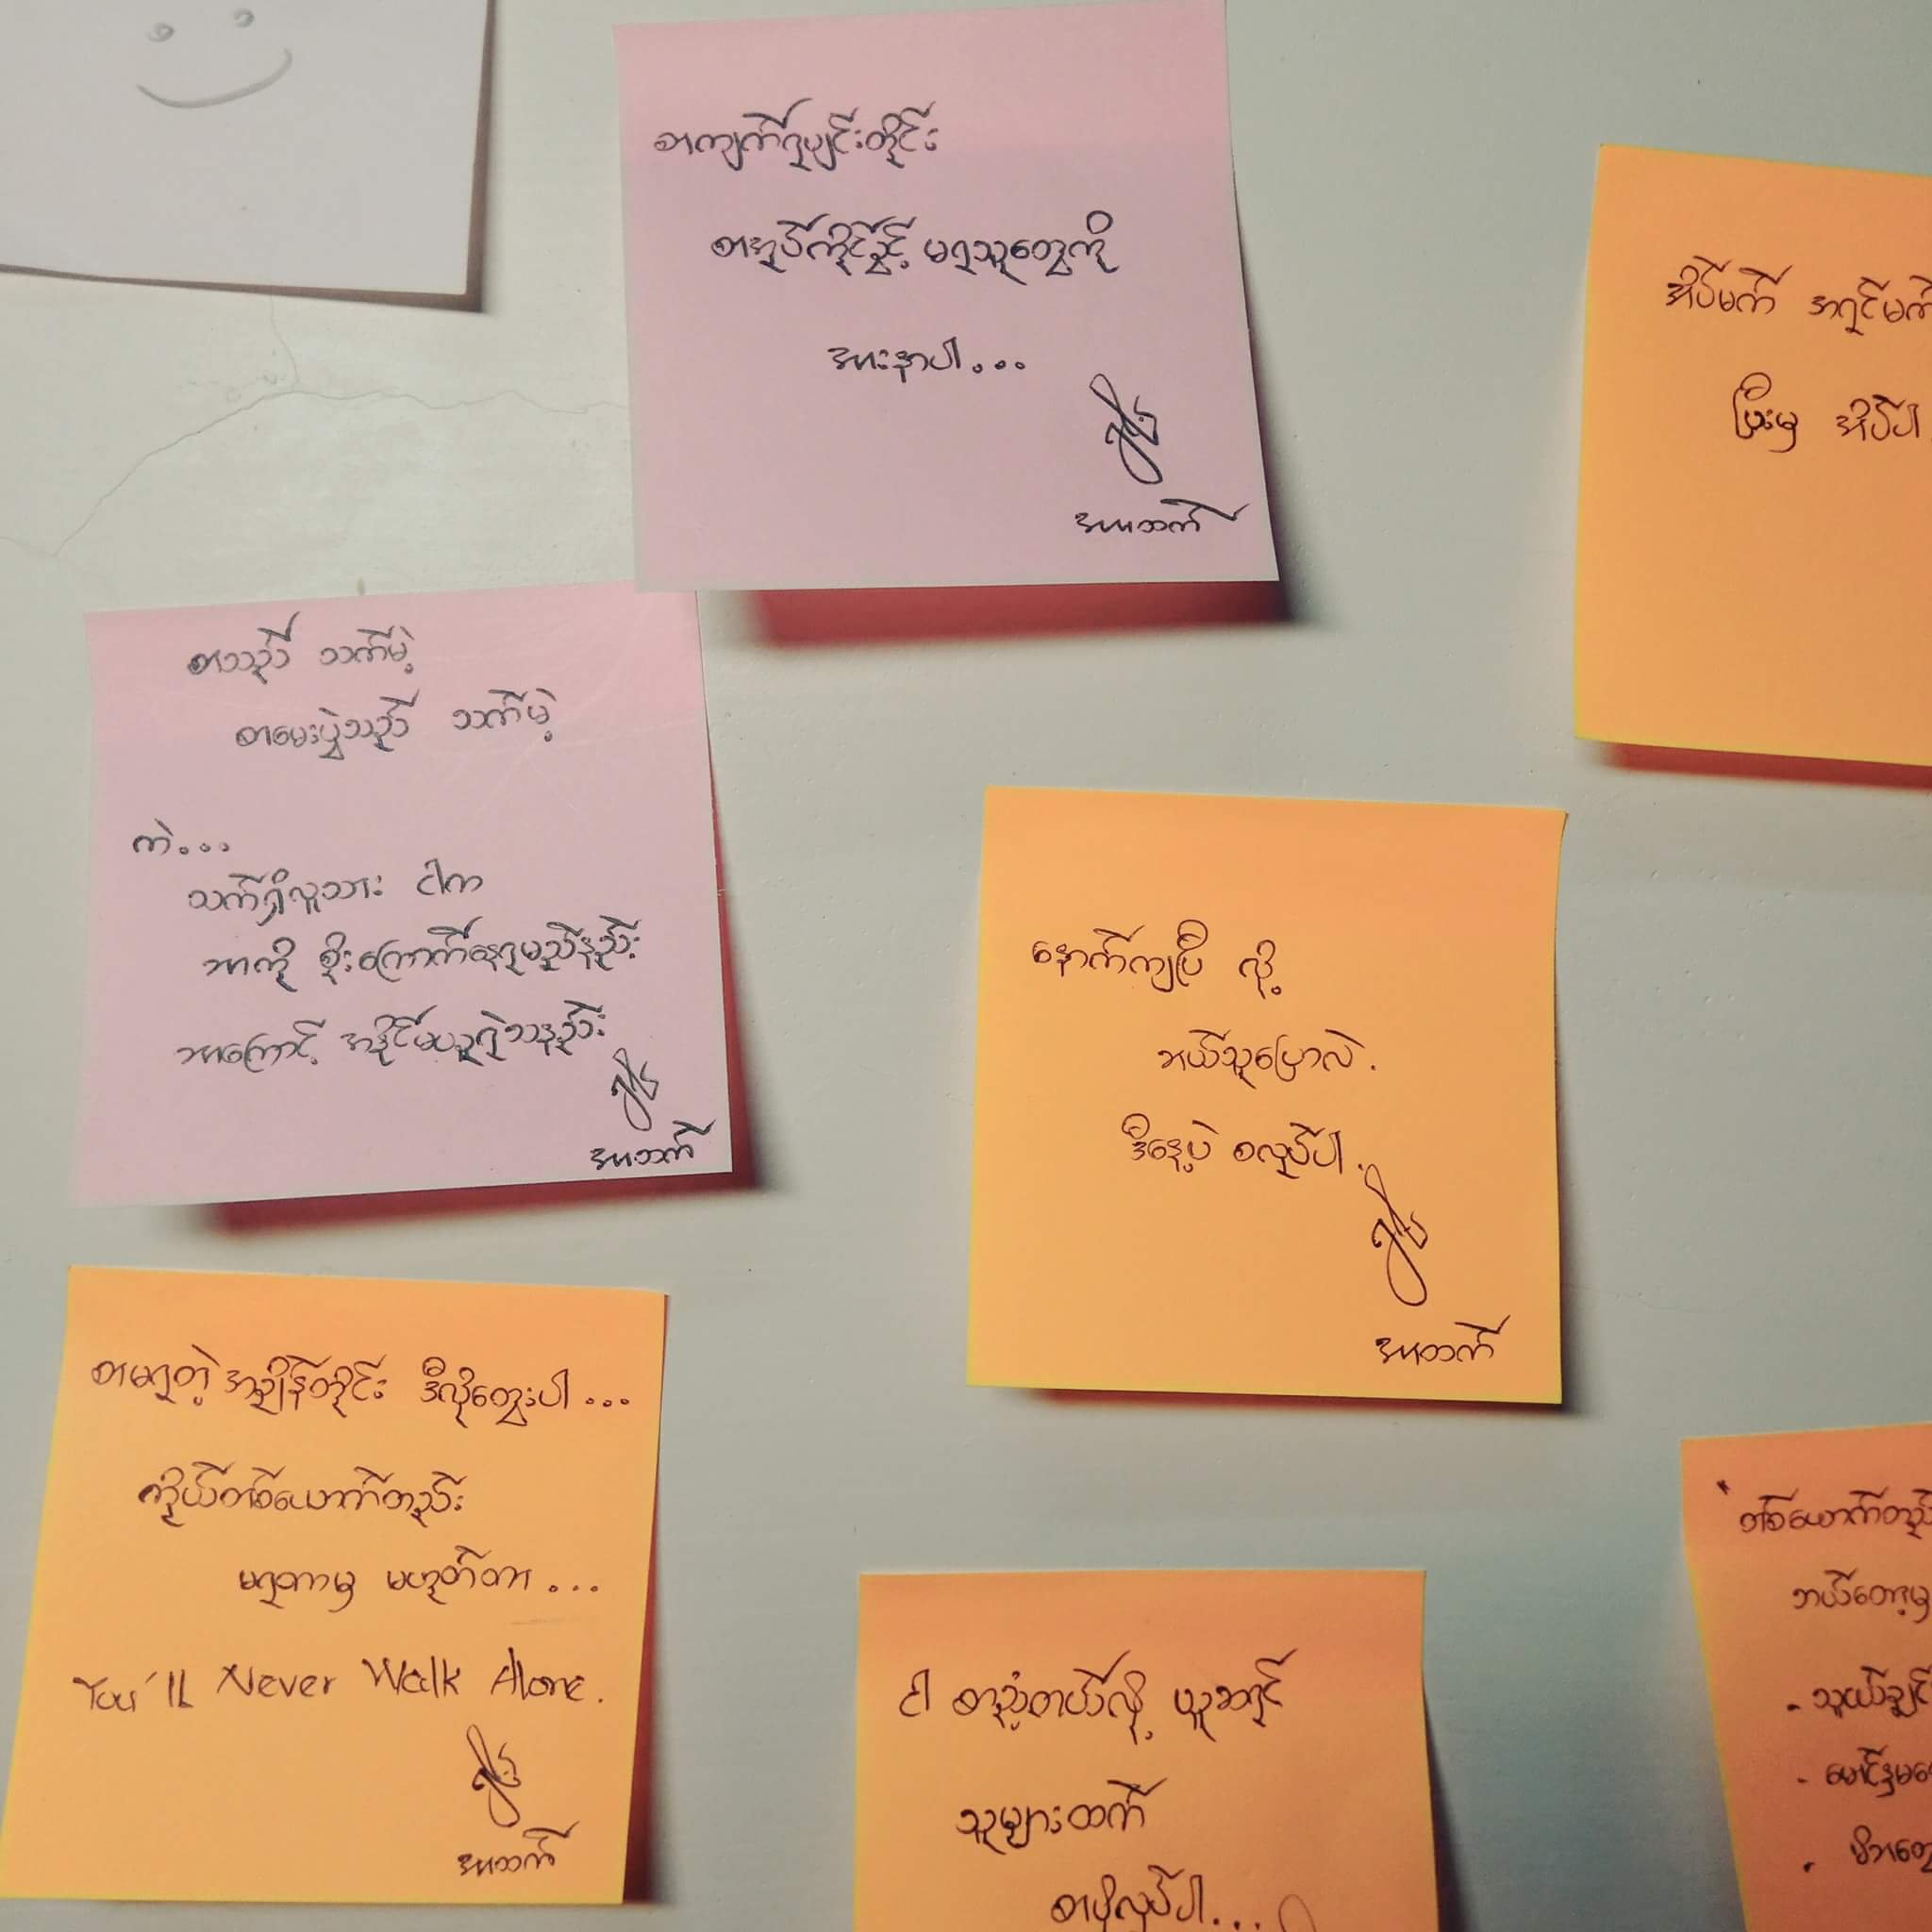 စာကျက်ရပျင်းတိုင်း
စာအုပ်ကိုင်ခွင့် မရသူတွေကို
အားနာပါ...
အာဃာတ်
အိပ်မက် အရင်မက်
ပြီးမှ အိပ်ပါ
စာသည် သက်မဲ့
စာမေးပွဲသည် သက်မဲ့
ကဲ...
သက်ရှိလူသား ငါက
ဘာကို စိုးကြောက်နေရမည်နည်း
ဘာကြောင့် အနိုင်မယူရဲသနည်း
နောက်ကျပြီ လို့
ဘယ်သူပြောလဲ.
ဒီနေ့ပဲ စလုပ်ပါ.
စာမရတဲ့ အချိန်တိုင်း ဒီလိုတွေးပါ...
ကိုယ်တစ်ယောက်တည်း
မရတာမှ မဟုတ်တာ...
You'll Never Walk Alone.
ငါ စာညံ့တယ်လို့ ယူဆရင်
သူများထက်
စာပိုလုပ်ပါ...
တစ်ယောက်တည်း
ဘယ်တော့မှ